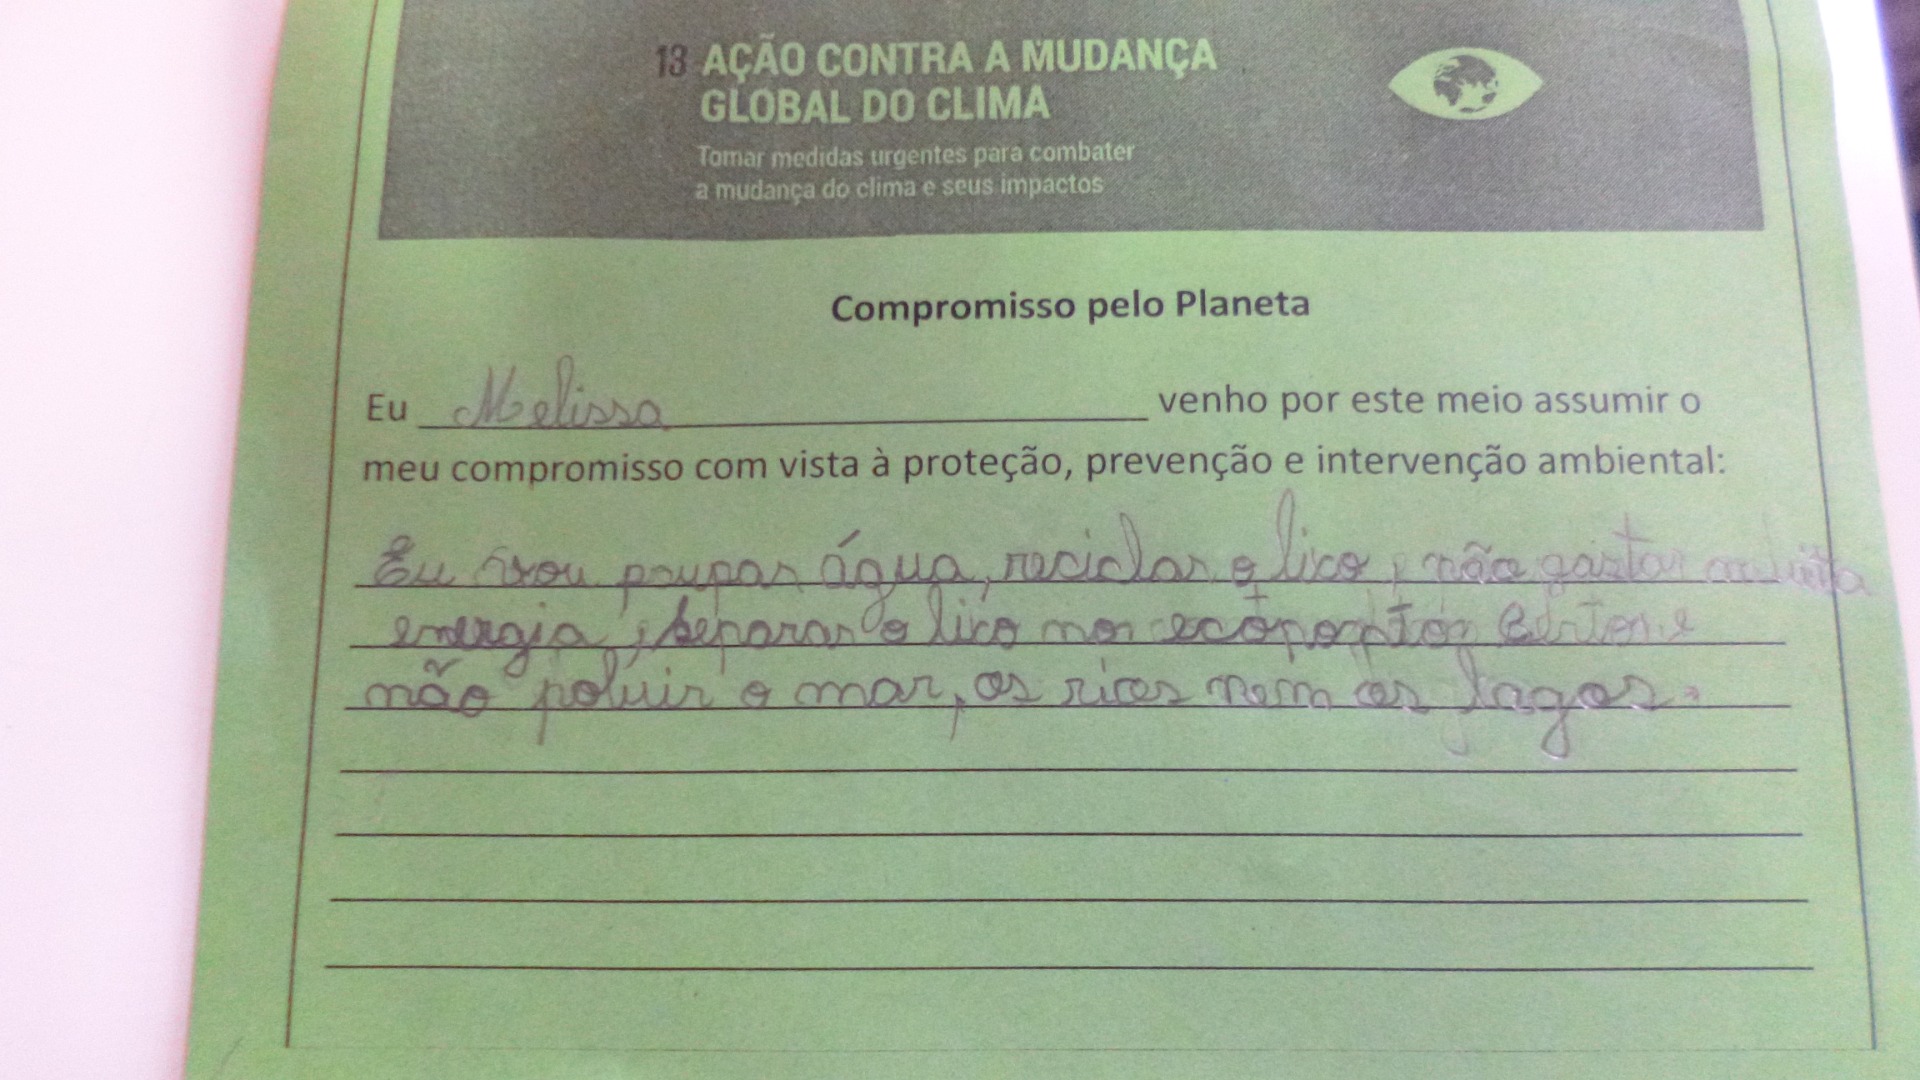 13 AÇÃO CONTRA A MUDANÇA
GLOBAL DO CLIMA
Tomar medidas urgentes para combater
a mudança do clima e seus impactos
Compromisso pelo Planeta
Eu Melissa venho por este meio assumir o
meu compromisso com vista à proteção, prevenção e intervenção ambiental:
Eu vou poupar água, reciclar o lixo, não gastar muita
energia, separar o lixo nos certos e
não poluir o mar, os rios nem os lagos.